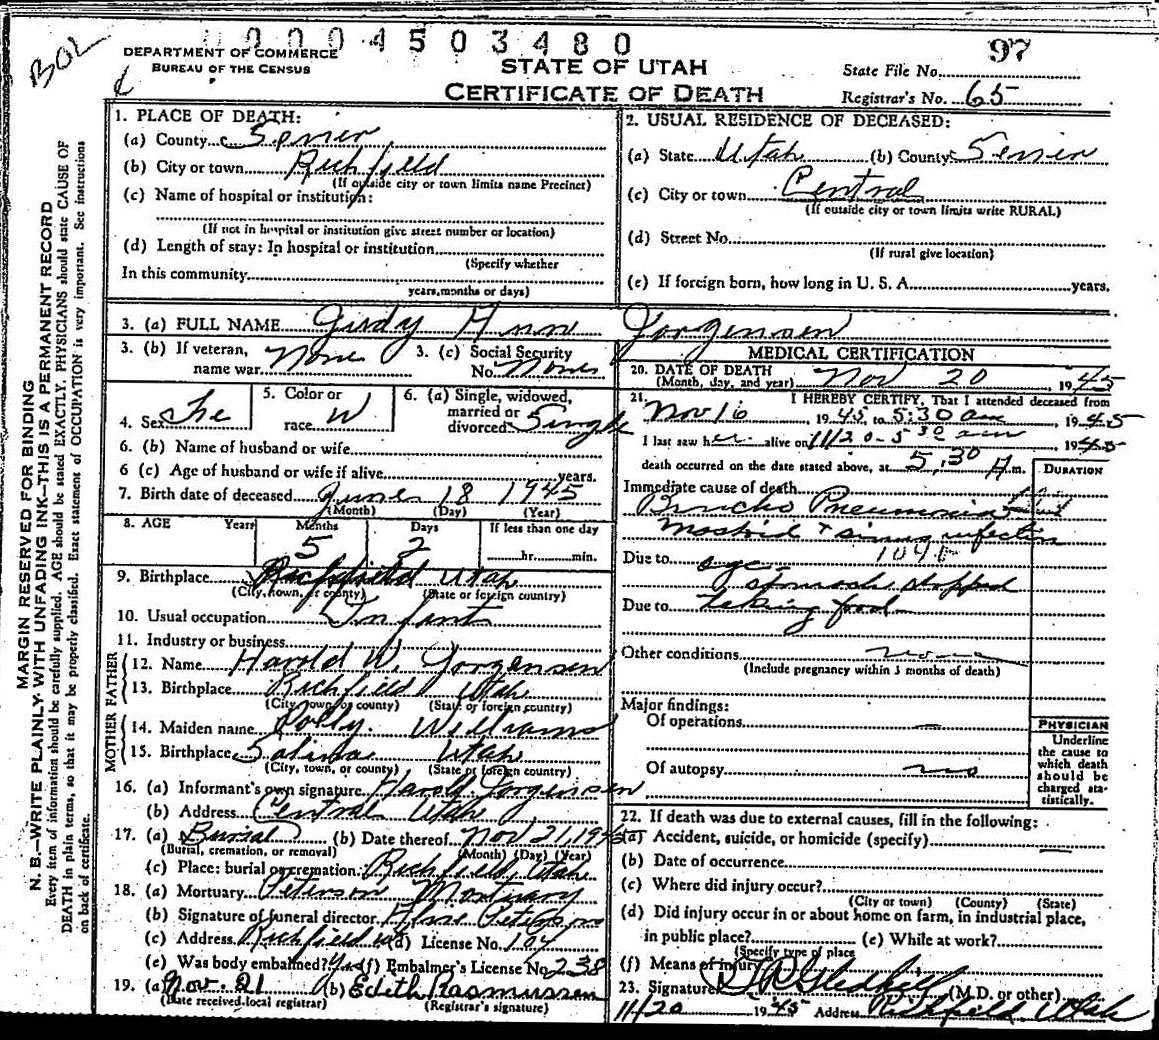 BOL
0 0 0 0 4 5 0 3 4 8 0
97
DEPARTMENT OF COMMERCE
BUREAU OF THE CENSUS
STATE OF UTAH
CERTIFICATE OF DEATH
State File No.
Registrar's No. 65
MARGIN RESERVED FOR BINDING
N. B.—WRITE PLAINLY, WITH UNFADING INK—THIS IS A PERMANENT RECORD
Every item of information should be carefully supplied. AGE should be stated EXACTLY. PHYSICIANS should state CAUSE OF
DEATH in plain terms, so that it may be properly classified. Exact statement of OCCUPATION is very important. See instructions
on back of certificate.
1. PLACE OF DEATH:
(a) County Sevier
(b) City or town Richfield
(If outside city or town limits name Precinct)
(c) Name of hospital or institution:
(If not in hospital or institution give street number or location)
(d) Length of stay: In hospital or institution
(Specify whether
In this community
years, months or days)
2. USUAL RESIDENCE OF DECEASED:
(a) State Utah (b) County Sevier
(c) City or town Central
(If outside city or town limits write RURAL)
(d) Street No.
(If rural give location)
(e) If foreign born, how long in U. S. A. years.
3. (a) FULL NAME Judy Ann Jorgensen
3. (b) If veteran, name war None
3. (c) Social Security No. None
4. Sex Fe
5. Color or race W
6. (a) Single, widowed, married or divorced Single
6. (b) Name of husband or wife
6 (c) Age of husband or wife if alive years.
7. Birth date of deceased June 18 1945
(Month) (Day) (Year)
8. AGE Years Months Days If less than one day
5 2 hr. min.
9. Birthplace Richfield Utah
(City, town, or county) (State or foreign country)
10. Usual occupation Infant
11. Industry or business
FATHER
12. Name Harold W. Jorgensen
13. Birthplace Richfield Utah
(City, town or county) (State or foreign country)
MOTHER
14. Maiden name Polly Williams
15. Birthplace Salina Utah
(City, town, or county) (State or foreign country)
16. (a) Informant's own signature Harold Jorgensen
(b) Address Central Utah
17. (a) Burial (b) Date thereof Nov 21, 1945
(Burial, cremation, or removal) (Month) (Day) (Year)
(c) Place: burial or cremation Richfield, Utah
18. (a) Mortuary Peterson Mortuary
(b) Signature of funeral director
(c) Address Richfield (d) License No. 104
(e) Was body embalmed? Yes (f) Embalmer's License No. 238
19. (a) Nov. 21 (b) Edith Rasmussen
(Date received local registrar) (Registrar's signature)
MEDICAL CERTIFICATION
20. DATE OF DEATH
(Month, day, and year) Nov 20, 1945
21. I HEREBY CERTIFY, That I attended deceased from
Nov 16, 1945, to 5:30 am, 1945
I last saw her alive on 11/20 - 5 30 am 1945
death occurred on the date stated above, at 5:30 A m.
DURATION
Immediate cause of death
Broncho Pneumonia
Mastoid + sinus infection
104°
Due to
stomach stopped
Due to taking food
Other conditions none
(Include pregnancy within 3 months of death)
Major findings:
Of operations —
Of autopsy no
PHYSICIAN
Underline
the cause to
which death
should be
charged sta-
tistically.
22. If death was due to external causes, fill in the following:
(a) Accident, suicide, or homicide (specify)
(b) Date of occurrence
(c) Where did injury occur?
(City or town) (County) (State)
(d) Did injury occur in or about home on farm, in industrial place,
in public place? (e) While at work?
(Specify type of place
(f) Means of injury
23. Signature Gledhill (M.D. or other)
11/20 1945 Address Richfield, Utah